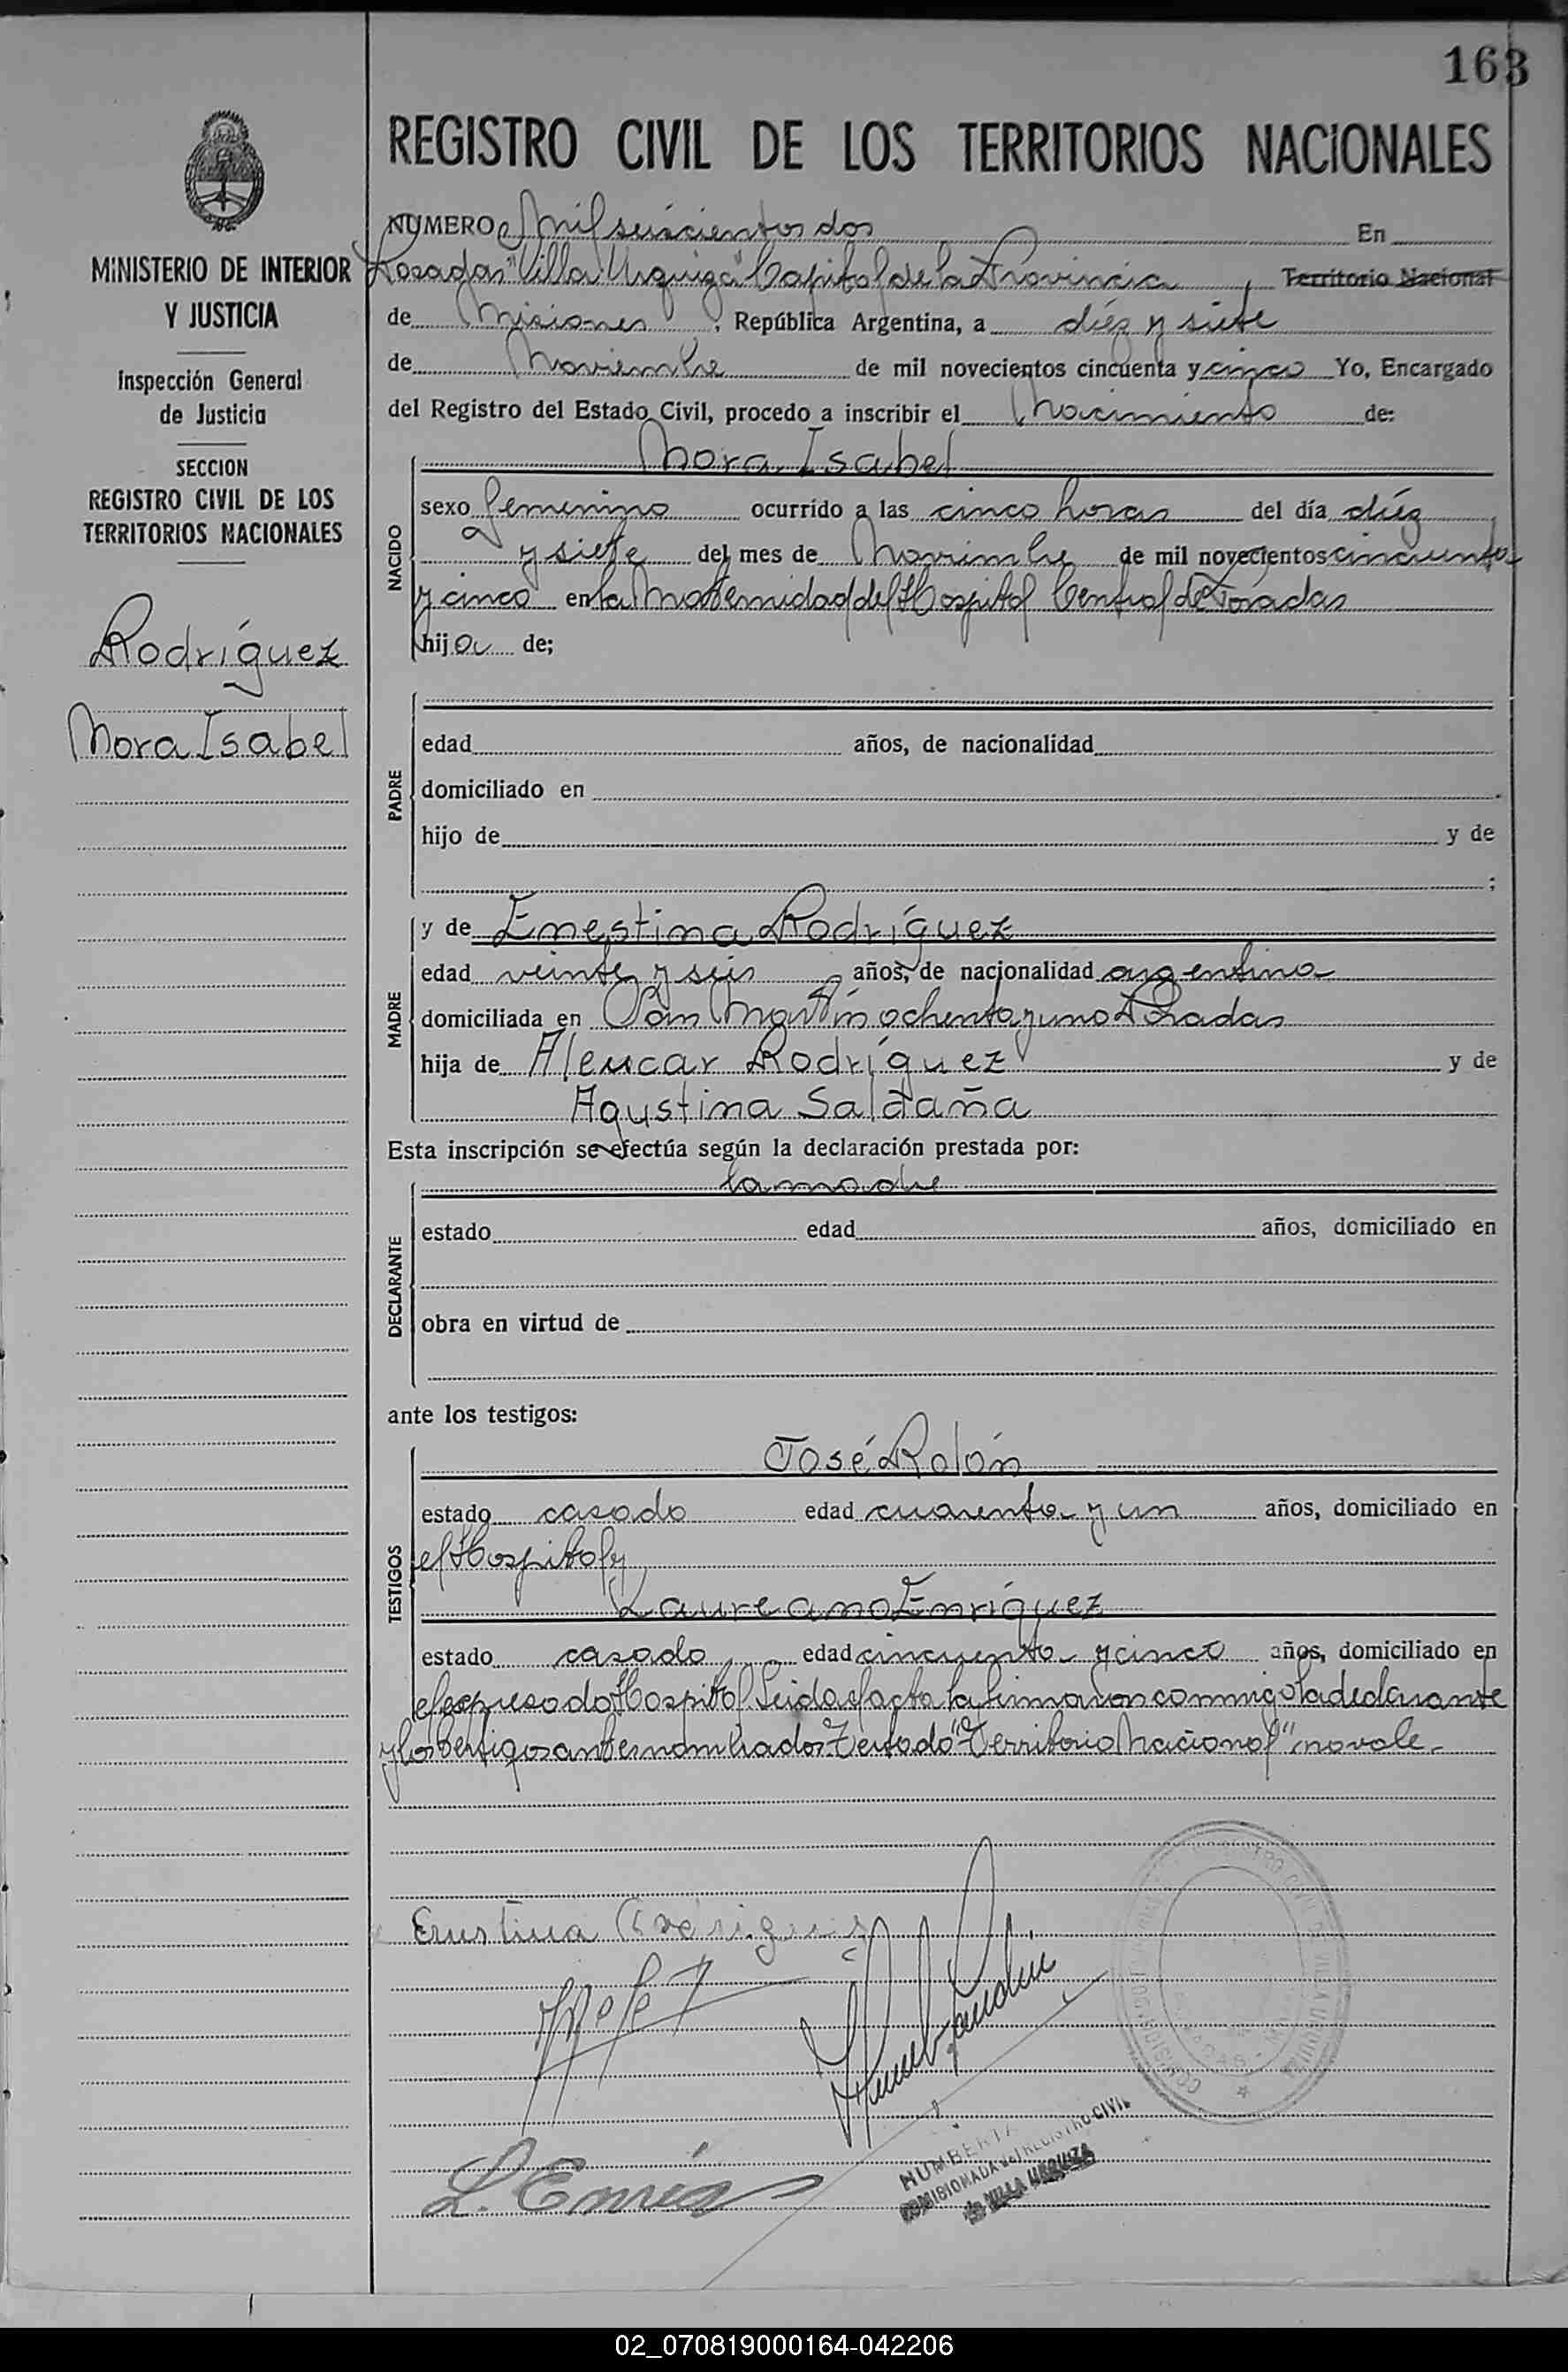 163
REGISTRO CIVIL DE LOS TERRITORIOS NACIONALES
MINISTERIO DE INTERIOR
Y JUSTICIA
Inspección General
de Justicia
SECCION
REGISTRO CIVIL DE LOS
TERRITORIOS NACIONALES
Rodríguez
Nora Isabel
NUMERO Mil seiscientos dos En
Posadas "Villa Urquiza" Capital de la Provincia Territorio Nacional
de Misiones, República Argentina, a diéz y siete
de Noviembre de mil novecientos cincuenta y cinco Yo, Encargado
del Registro del Estado Civil, procedo a inscribir el Nacimiento de:
Nora Isabel
NACIDO
sexo femenino ocurrido a las cinco horas del día diéz
y siete del mes de Noviembre de mil novecientos cincuenta
y cinco en la Maternidad del Hospital Central de Posadas
hija de;
PADRE
edad años, de nacionalidad
domiciliado en
hijo de y de
;
MADRE
y de Ernestina Rodríguez
edad veinte y seis años, de nacionalidad argentina
domiciliada en San Martín ochenta y uno Posadas
hija de Alencar Rodríguez y de
Agustina Saldaña
Esta inscripción se efectúa según la declaración prestada por:
la madre
DECLARANTE
estado edad años, domiciliado en
obra en virtud de
ante los testigos:
José Rolón
TESTIGOS
estado casado edad cuarenta y un años, domiciliado en
el Hospital y
Laureano Enríquez
estado casado edad cincuenta y cinco años, domiciliado en
el expresado Hospital Leida el acta la firmaron conmigo la declarante
y los testigos antes nombrados Testado "Territorio Nacional" no vale
Ernestina Rodrigues
L. Enríq
REGISTRO CIVIL DE VILLA URQUIZA
COMISIONADA del REGISTRO CIVIL
de VILLA URQUIZA
02_070819000164-042206